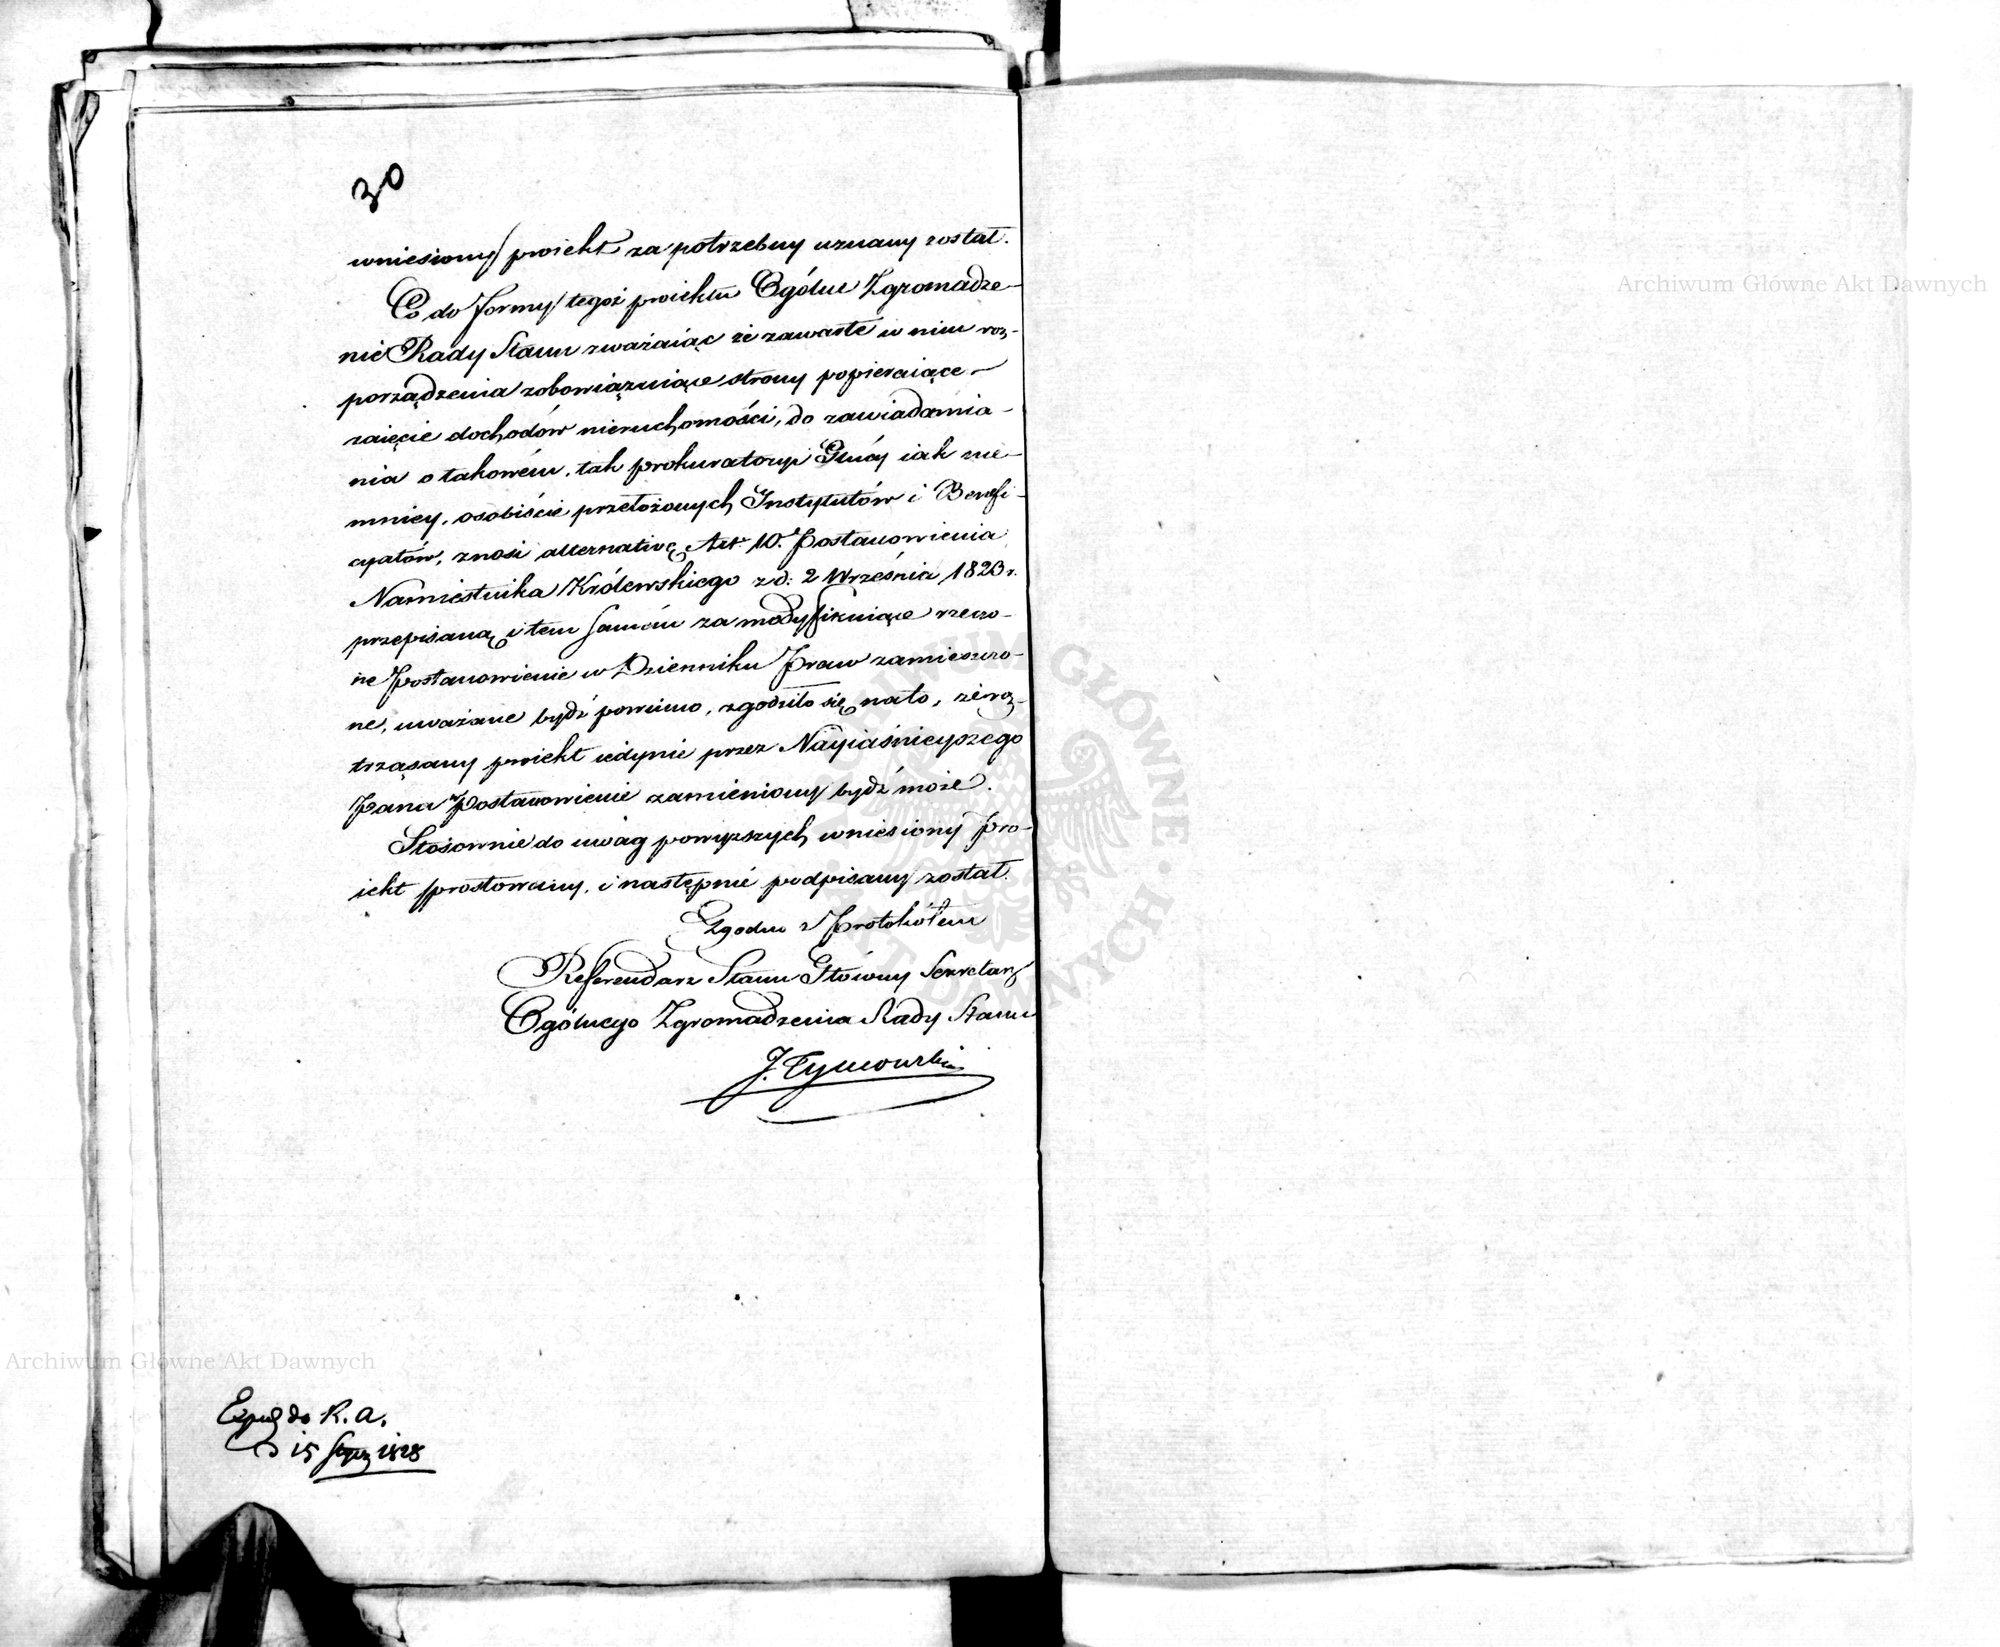 30
wniesiony proiekt za potrzebny uznany został.
Co do formy tegoż proiektu Ogólne Zgromadze-
nie Rady Stanu zważaiąc że zawarte w nim roz-
porządzenia zobowiązuiące strony popieraiące
zaięcie dochodów nieruchomości, do zawiadamia-
nia o takowém, tak prokuratoryi Głney iak nie-
mniey, osobiście przełożonych Instytutów i Benefi-
cyatów, znosi alternativę Art. 10. Postanowienia
Namiestnika Królewskiego z d: 2 Września 1823 r.
przepisaną i tem samém za modyfikuiące rzeczo-
ne Postanowienie w Dzienniku Praw zamieszczo-
ne, uważane bydź powinno, zgodziło się na to, że roz-
trząsany proiekt iedynie przez Nayiaśnieyszego
Pana w Postanowienie zamieniony bydź może.
Stosownie do uwag powyższych wniesiony pro-
iekt sprostowany, i następnie podpisany został.
Zgodno z Protokółem
Referendarz Stanu Główny Sekretarz
Ogólnego Zgromadzenia Rady Stanu
J. Tymowski
do R. A.
15 1828
Archiwum Główne Akt Dawnych
Archiwum Główne Akt Dawnych